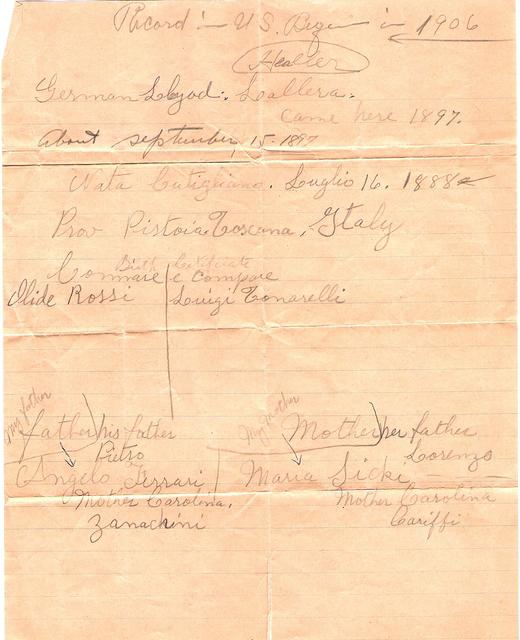 Record :- U.S. Begin in 1906
Healter
German Llyod: Lallera.
came here 1897.
About september, 15-1897
Nata Cutigliano. Luglio 16. 1888
Prov Pistoia Toscana, Italy
Birth Certificate
Commare e Compare
Olide Rossi Luigi Tonarelli
My father My Mother
father his father Mother her father
Pietro Lorenzo
Angelo Ferrari Maria Sichi
Mother Carolina, Mother Carolina
Zanachini Cariffi